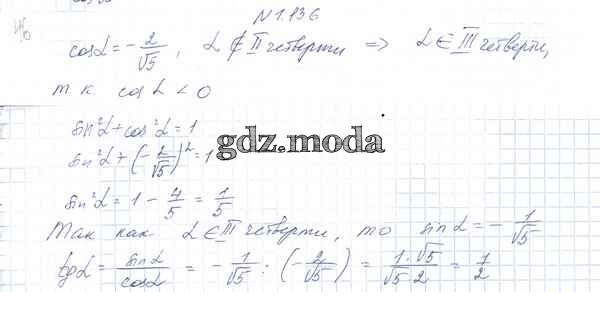 N 1.136
cos α = - 2/√5, α ∉ II четверти => α ∈ III четверти,
т. к cos α < 0
sin²α + cos²α = 1
sin²α + (- 2/√5)² = 1
gdz.moda
sin²α = 1 - 4/5 = 1/5
Так как α ∈ III четверти, то sin α = - 1/√5
tg α = sin α/cos α = - 1/√5 : (- 2/√5) = 1·√5/√5 2 = 1/2